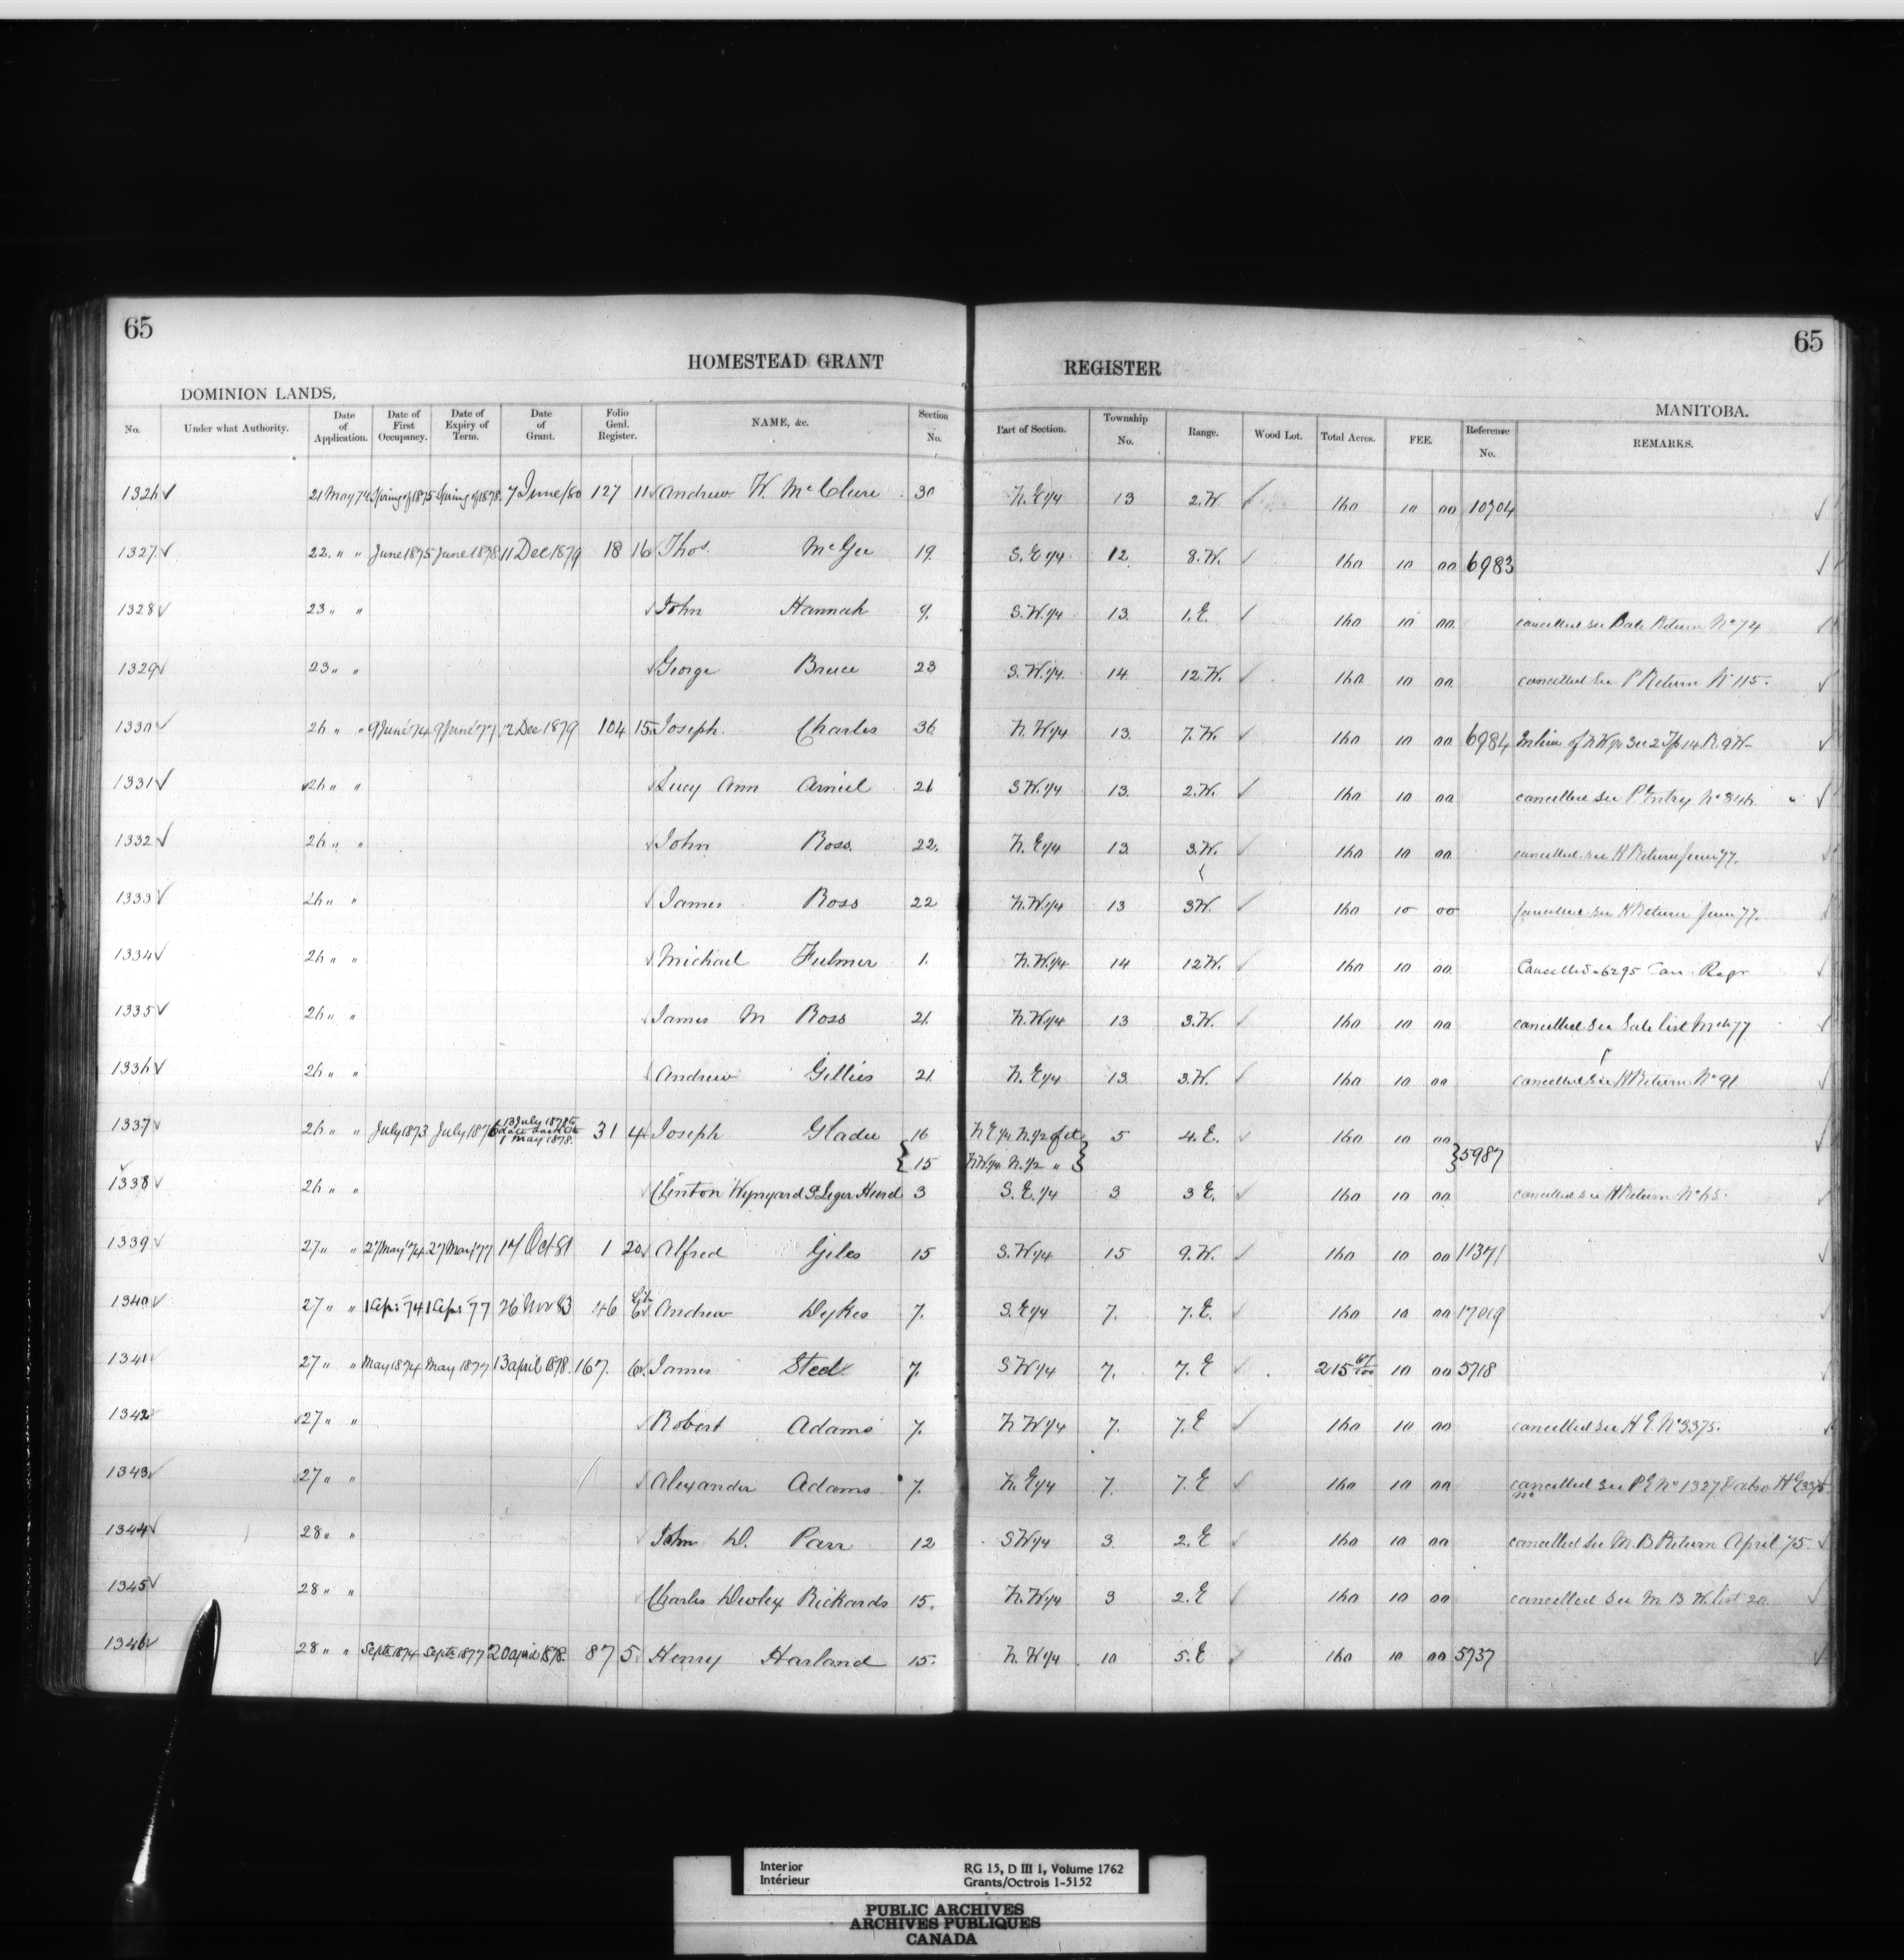 65 65
HOMESTEAD GRANT REGISTER
DOMINION LANDS, MANITOBA.
No. Under what Authority. Date of Application. Date of First Occupancy. Date of Expiry of Term. Date of Grant. Folio Genl. Register. NAME, &c. Section No. Part of Section. Township No. Range. Wood Lot. Total Acres. FEE. Reference No. REMARKS.
1326 21 May 74 Spring of 1875 Spring of 1878 7 June/80 127 11 Andrew W. McClure 30 N.E 1/4 13 2.W. 160 10 00 10704
1327 22 " " June 1875 June 1878 11 Dec 1879 18 16 Thos. McGee 19 S.E 1/4 12 8.W. 160 10 00 6983
1328 23 " " John Hannah 9. S.W. 1/4 13 1.E. 160 10 00 cancelled see Return No 74
1329 23 " " George Bruce 23 S.W. 1/4 14 12.W. 160 10 00 cancelled see P Return No 115.
1330 26 " " 9 June '74 9 June '77 2 Dec 1879 104 15 Joseph Charles 36 N.W 1/4 13 7.W. 160 10 00 6984 In lieu of N W 1/4 Sec 2 Tp 14 R. 9 W
1331 26 " " Lucy Ann 21 S W. 1/4 13 2.W. 160 10 00 cancelled see P Entry No 846
1332 26 " " John Ross. 22. N.E 1/4 13 3.W. 160 10 00 cancelled see H Return June 77.
1333 26 " " James Ross 22 N.W 1/4 13 3W. 160 10 00 Cancelled see H Return June 77.
1334 26 " " Michael Fulmer 1. N.W. 1/4 14 12W. 160 10 00 Cancelled - 6295 Can. Regr
1335 26 " " James M Ross 21. N.W 1/4 13 3.W. 160 10 00 cancelled see Sale list Mch 77
1336 26 " " Andrew Gillies 21 N.E 1/4 13 3.W. 160 10 00 cancelled see H Return No 91
1337 26 " " July 1873 July 1876 13 July 1878 1 May 1878. 31 4 Joseph Gladu 16 N E 1/4 N. 1/2 of it 5 4.E. 160 10 00
15 N W 1/4 N. 1/2 " 5987
1338 26 " " Clinton Wynyard St Leger Hurd 3 S.E. 1/4 3 3 E. 160 10 00 cancelled see H Return No 65.
1339 27 " " 27 May '74 27 May '77 17 Oct 81 1 20 Alfred Giles 15 S.W 1/4 15 9.W. 160 10 00 11371
1340 27 " " 1 Apr. '74 1 Apr. '77 26 Nov 83 46 Lib 6 Andrew Dykes 7. S.E 1/4 7. 7.E. 160 10 00 17019
1341 27 " " May 1874 May 1877 13 April 1878. 167. 6 James Steel 7. S W 1/4 7. 7.E 215 67/100 10 00 5718
1342 27 " " Robert Adams 7. N W 1/4 7. 7.E 160 10 00 cancelled see H E. No 3375.
1343 27 " " Alexander Adams 7. N.E 1/4 7. 7.E 160 10 00 cancelled see P E No 1327 & also H E 3375. No
1344 28 " " John D. Parr 12 S W 1/4 3 2.E 160 10 00 cancelled see M.B Return April 75.
1345 28 " " Charles Dewley Rickards 15. N.W 1/4 3 2.E 160 10 00 cancelled see M B W. list 20
1346 28 " " Septr 1874 Septr 1877 20 April 1878. 87 5 Henry Harland 15. N.W 1/4 10 5.E 160 10 00 5737
Interior RG 15, D III 1, Volume 1762
Intérieur Grants/Octrois 1-5152
PUBLIC ARCHIVES
ARCHIVES PUBLIQUES
CANADA